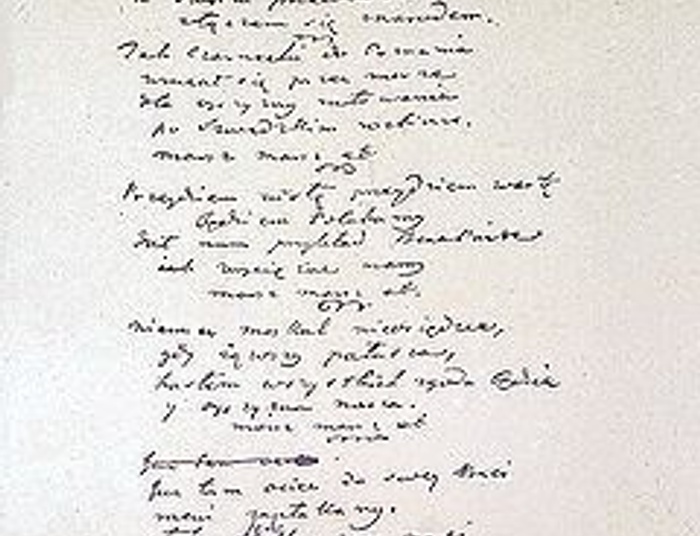 złączem się z narodem.
Jak Czarnecki do Poznania
wracał się przez morze
dla oyczyzny ratowania
po szwedzkim rozbiorze.
marsz marsz et
Przeydziem wisłę przeydziem wartę
będziem Polakamy
dał nam przykład Bonaparte
jak zwycięzać mamy
marsz marsz et.
niemiec moskal nieosiędzie,
gdy iąwszy pałasza,
hasłem wszystkich zgoda będzie
y oyczyzna nasza.
marsz marsz et
Juz tam
Juz tam ociec do swey Basi
mówi zapłakany.